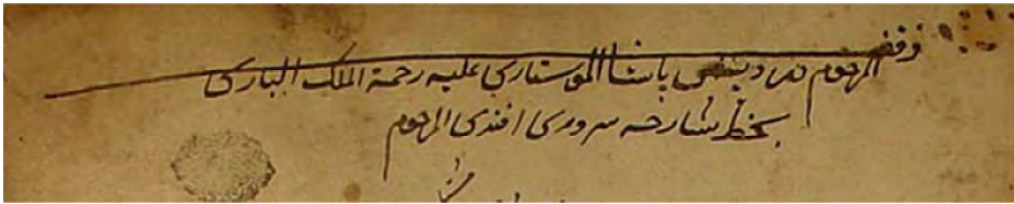 وقف المرحوم درويش پاشا الموستاري عليه رحمة الملك الباري
بخط شارحه سروري افندي المرحوم